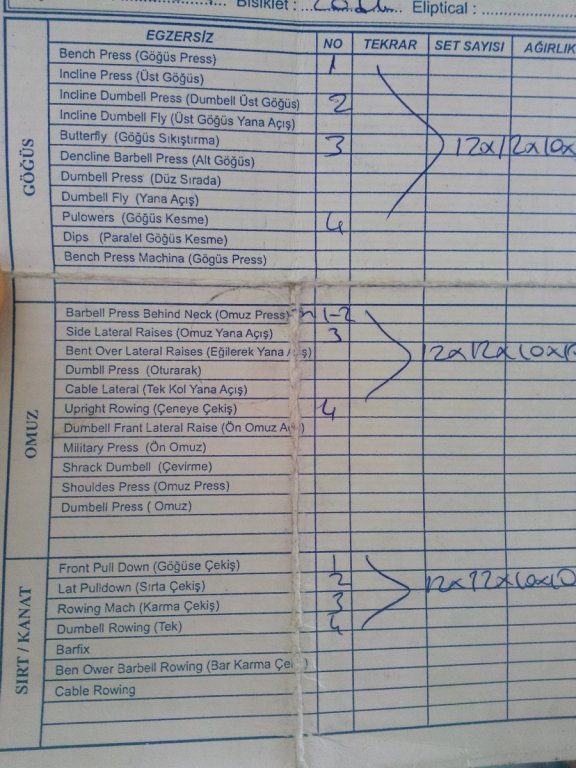 Bisiklet : ........ Eliptical : ....................
EGZERSİZ NO TEKRAR SET SAYISI AĞIRLIK
GÖĞÜS
Bench Press (Göğüs Press) 1
Incline Press (Üst Göğüs)
Incline Dumbell Press (Dumbell Üst Göğüs) 2
Incline Dumbell Fly (Üst Göğüs Yana Açış)
Butterfly (Göğüs Sıkıştırma) 3 12x12x10x
Dencline Barbell Press (Alt Göğüs)
Dumbell Press (Düz Sırada)
Dumbell Fly (Yana Açış)
Pulowers (Göğüs Kesme) 4
Dips (Paralel Göğüs Kesme)
Bench Press Machina (Gögüs Press)
OMUZ
Barbell Press Behind Neck (Omuz Press) 1-2
Side Lateral Raises (Omuz Yana Açış) 3
Bent Over Lateral Raises (Eğilerek Yana Açış) 12x12x10x
Dumbll Press (Oturarak)
Cable Lateral (Tek Kol Yana Açış)
Upright Rowing (Çeneye Çekiş) 4
Dumbell Frant Lateral Raise (Ön Omuz Açış)
Military Press (Ön Omuz)
Shrack Dumbell (Çevirme)
Shouldes Press (Omuz Press)
Dumbell Press ( Omuz)
SIRT / KANAT
Front Pull Down (Göğüse Çekiş) 1
Lat Pulldown (Sırta Çekiş) 2 12x12x10x10
Rowing Mach (Karma Çekiş) 3
Dumbell Rowing (Tek) 4
Barfix
Ben Ower Barbell Rowing (Bar Karma Çekiş)
Cable Rowing